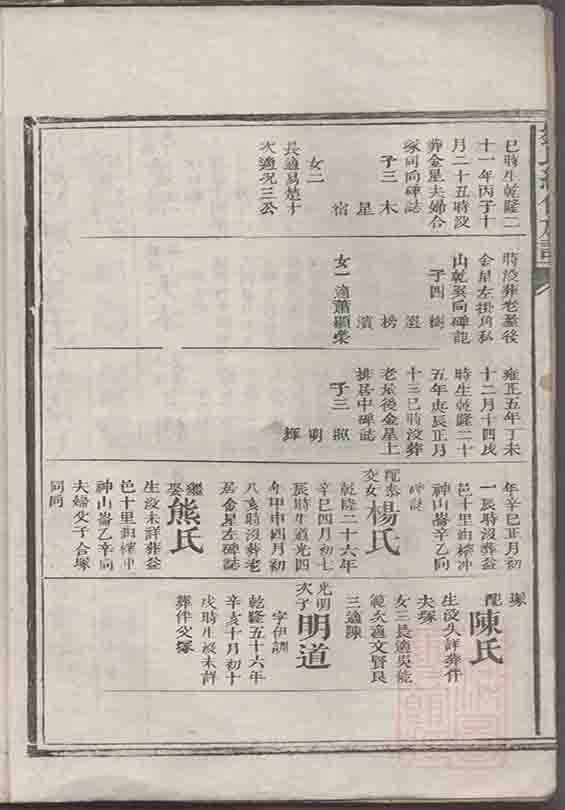 巳時生乾隆二
十一年丙子十
月二十五時沒
葬金星夫婦合
塚同向碑誌
子三 木
星
宿
女二
長適易楚才
次適況三公
時沒葬老墓後
金星左掛角私
山乾巽向碑龍
子四 樹
榜
濱
女一適蕭顯榮
雍正五年丁未
十二月十四戌
時生乾隆二十
五年庚辰正月
十三巳時沒葬
老墓後金星上
排居中碑誌
子三 照
明
輝
年辛巳正月初
一辰時沒葬益
邑十里油榨冲
神山崙辛乙向
碑誌
配
交女楊氏
乾隆二十六年
辛巳四月初七
辰時生道光四
年甲申四月初
八亥時沒葬老
居金星左碑誌
繼娶熊氏
生沒未詳葬益
邑十里油榨冲
神山崙乙辛向
夫婦父子合塚
同向
塚
配陳氏
生沒失詳葬伴
夫塚
女三長適吳能
範次適文賢良
三適陳
光明次子明道
字伊訓
乾隆五十六年
辛亥十月初十
戌時生沒未詳
葬伴父塚